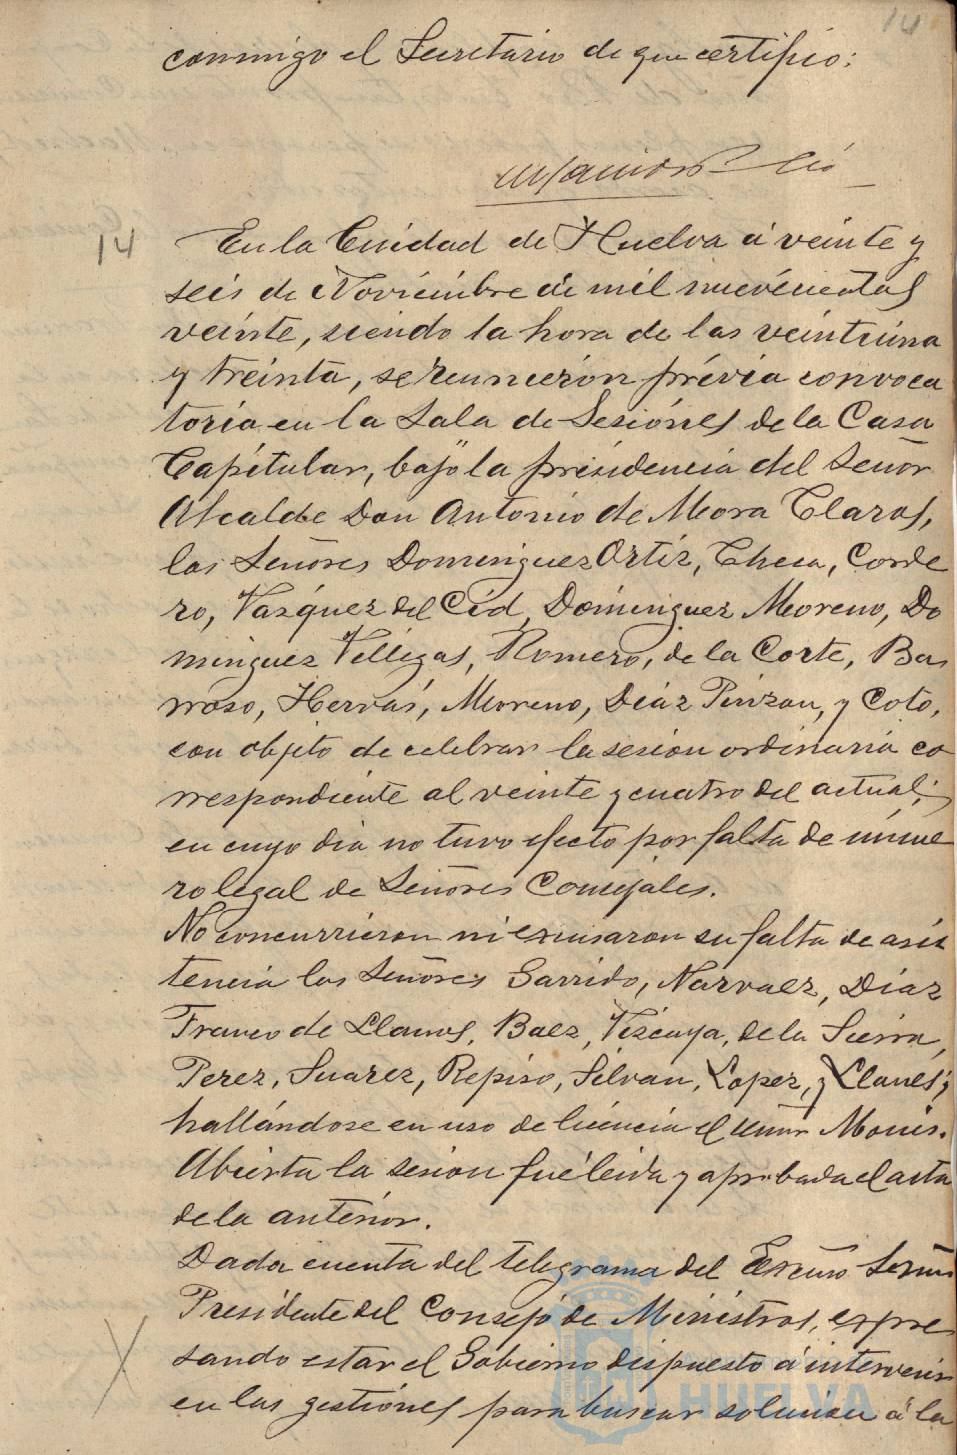 14
conmigo el Secretario de que certifico:
14 En la Ciudad de Huelva á veinte y
seis de Noviémbre de mil nuevécientos
veinte, siendo la hora de las veintiuna
y treinta, se reunieron prévia convoca
toria en la Sala de Sesiónes de la Casa
Capitular, bajo la presidencia del Señor
Alcalde Don Antonio de Mora Claros,
los Señores Dominguez Ortiz, Checa, Corde
ro, Vazquez del Cid, Dominguez Moreno, Do
minguez Villegas, Romero, de la Corte, Ba
rroso, Hervás, Moreno, Diaz Pinzon, y Coto,
con objeto de celebrar la sesion ordinaria co
rrespondiente al veinte y cuatro del actual,
en cuyo dia no tuvo efecto por falta de núme
ro legal de Señores Concejales.
No concurrieron ni excusaron su falta de asis
tencia los Señores Garrido, Narvaez, Diaz
Franco de Llanos, Baez, Vizcaya, de la Sierra,
Perez, Suarez, Repiso, Silvan, Lopez, y Llanes y
hallándose en uso de licencia el Señor Monis.
Abierta la sesion fué leida y aprobada el acta
de la anterior.
Dada cuenta del telegrama del Excmo Señor
Presidente del Consejo de Ministros, expre
sando estar el Gobierno dispuesto á intervenir
en las gestiónes para buscar solucion á la
HUELVA